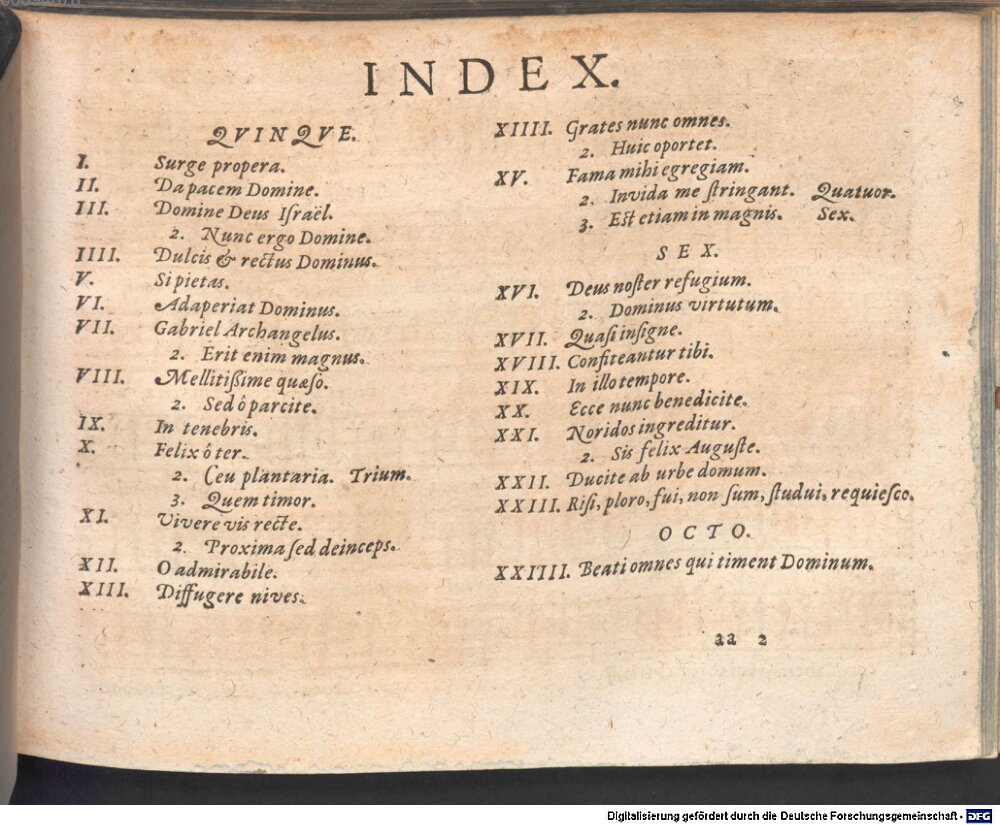 INDEX.
QVINQVE.
I. Surge propera.
II. Da pacem Domine.
III. Domine Deus Iſraël.
2. Nunc ergo Domine.
IIII. Dulcis & rectus Dominus.
V. Si pietas.
VI. Adaperiat Dominus.
VII. Gabriel Archangelus.
2. Erit enim magnus.
VIII. Mellitißime quæſo.
2. Sed ô parcite.
IX. In tenebris.
X. Felix ô ter.
2. Ceu plantaria. Trium.
3. Quem timor.
XI. Vivere vis recte.
2. Proxima ſed deinceps.
XII. O admirabile.
XIII. Diffugere nives.
XIIII. Grates nunc omnes.
2. Huic oportet.
XV. Fama mihi egregiam.
2. Invida me ſtringant. Quatuor.
3. Eſt etiam in magnis. Sex.
SEX.
XVI. Deus noſter refugium.
2. Dominus virtutum.
XVII. Quaſi inſigne.
XVIII. Confiteantur tibi.
XIX. In illo tempore.
XX. Ecce nunc benedicite.
XXI. Noridos ingreditur.
2. Sis felix Auguſte.
XXII. Ducite ab urbe domum.
XXIII. Riſi, ploro, fui, non ſum, ſtudui, requieſco.
OCTO.
XXIIII. Beati omnes qui timent Dominum.
aa 2
Digitalisierung gefördert durch die Deutsche Forschungsgemeinschaft - DFG